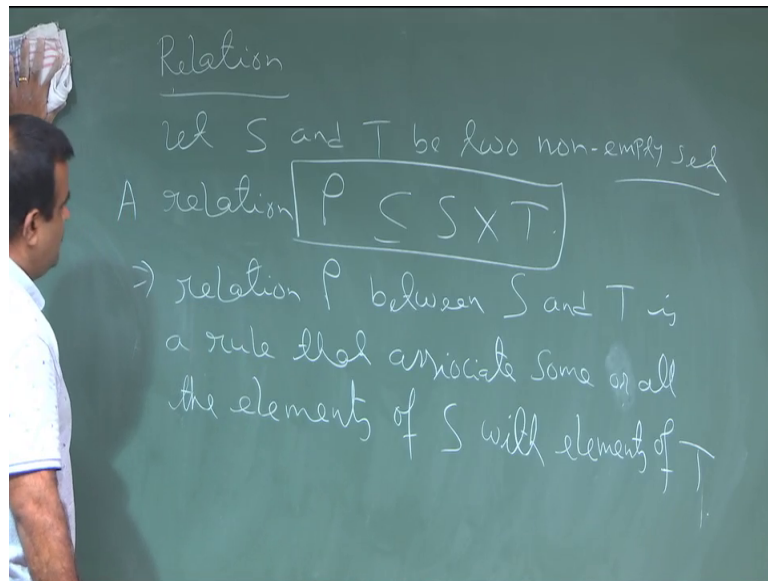 Relation
Let S and T be two non-empty set
A relation ρ ⊆ S X T.
⇒ relation ρ between S and T is
a rule that assiociate some or all
the elements of S with elements of T.